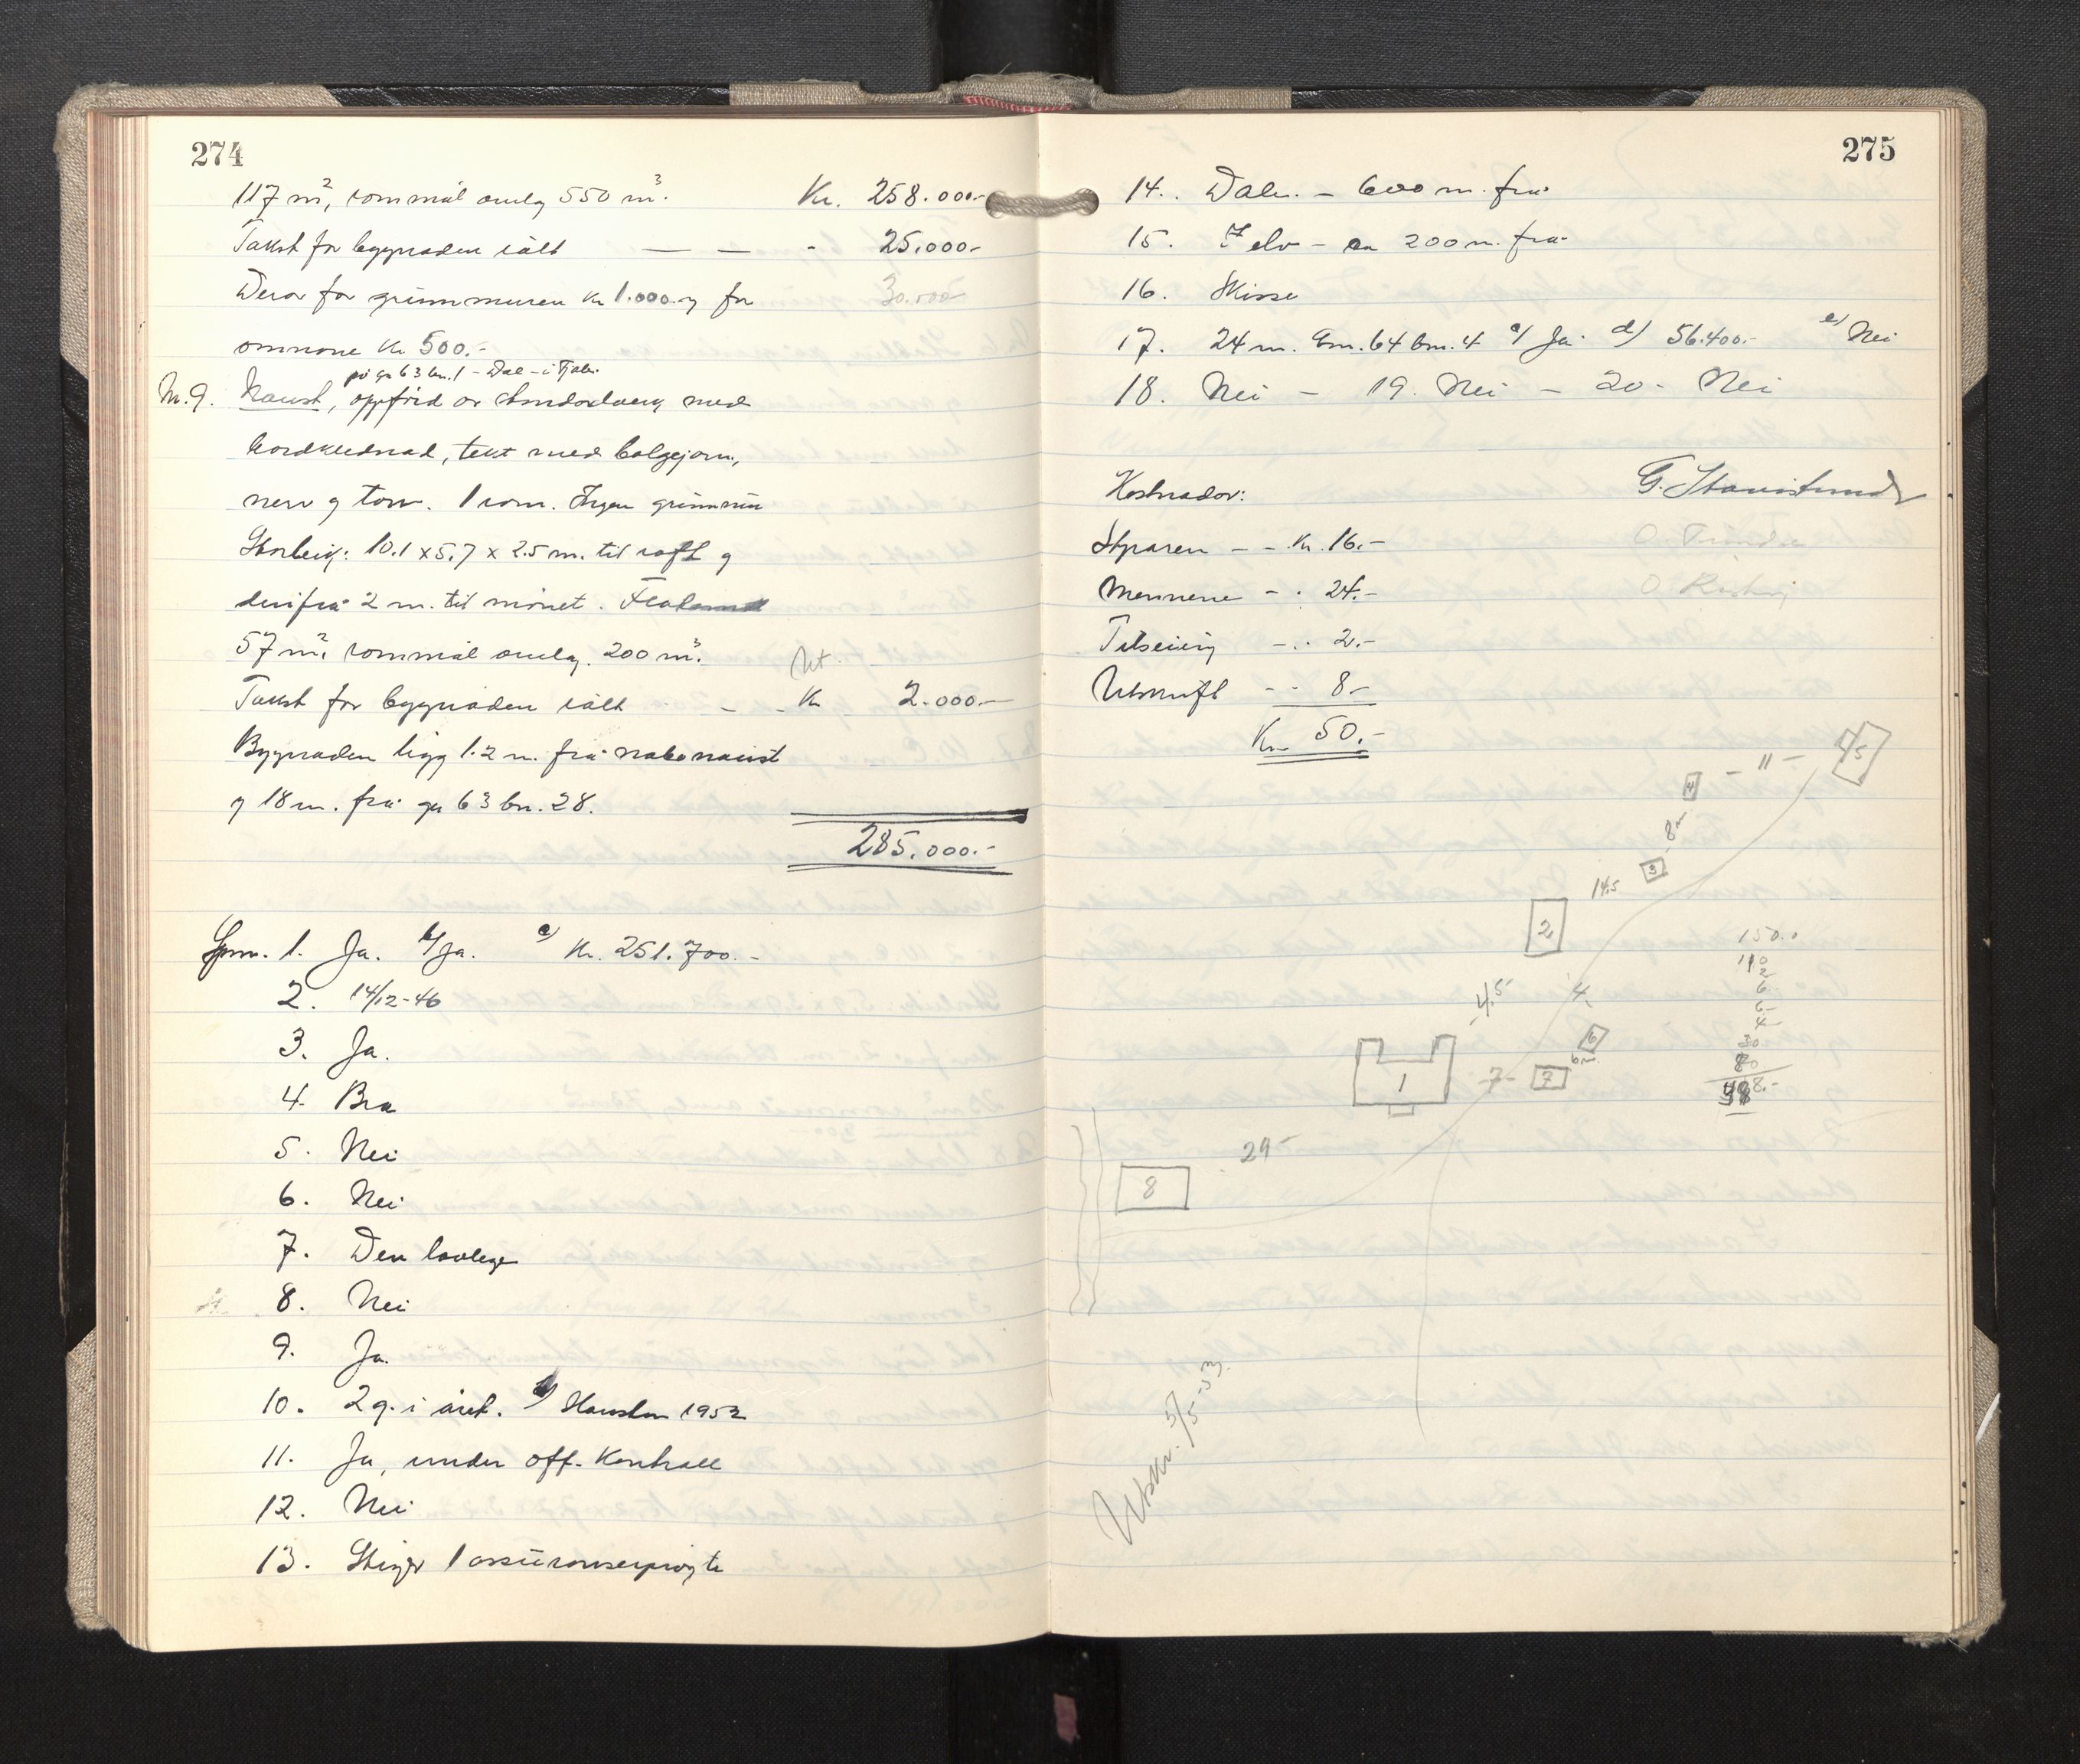 274
117 m², rommål omlag 550 m³. Kr. 258.000.-
Takst for bygnaden ialt — — - 25.000.-
Derav for grunnmuren kr 1.000.- og for 30.000
omnane kr 500.-
på gn 63 bn. 1 - Dale - i Fjaler
M.9. Naust, oppförd av stendarverk med
bordklednad, tekt med bølgejarn,
nerv og torv. 1 rom. Ingen grunnmur
Storleik: 10.1 x 5.7 x 2.5 m. til raft og
derifrå 2 m. til mønet.
57 m². rommål omlag. 200 m³.
Takst for bygnaden ialt - - Kr 2.000.-
Bygnaden ligg 1.2 m. frå nabonaust
og 18 m. frå gn 63 bn. 28.
285.000.-
Spm. 1. Ja. b/ Ja. c/ Kr. 251.700.-
2. 14/12-46
3. Ja.
4. Bra
5. Nei
6. Nei
7. Den lovlege
8. Nei
9. Ja.
10. 2 g. i året. Hausten 1952
11. Ja, under off. kontroll
12. Nei
13. Stiger 1 assuransesprøyte
275
14. Dale. - 600 m. frå
15. Elv - ca 200 m. frå
16. Skisse
17. 24 m. Gn. 64 bn. 4 c/ Ja. d/ 56.400.- e/ Nei
18. Nei - 19. Nei - 20. Nei
Kostnader:
Styraren - - Kr. 16.-
Mennene - - 24.-
Tilseiing - - 2.-
Utskrift - - 8.-
Kr 50.-
4/5
- 11 -
4
8 -
3
14.5
2
4.5
4
6
6 m
1
7 -
7
29 -
8
150.0
110
2
6
6 -
4 -
30
80
8.-
Utskr. 5/5-53.